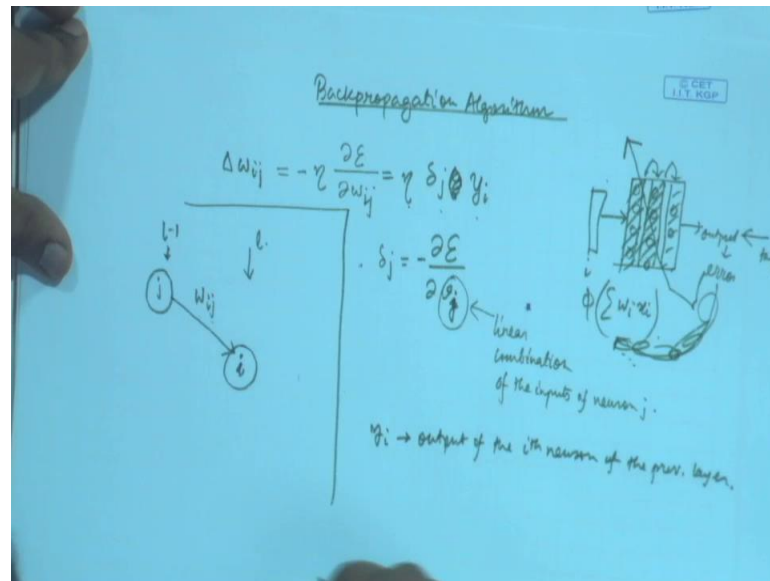 © CET
I.I.T. KGP
Backpropagation Algorithm
Δwij = -η ∂ε/∂wij = η δj yi
l-1
l.
j
wij
i
δj = -∂ε/∂
linear
combination
of the inputs of neuron j.
yi → output of the ith neuron of the prev. layer.
output
error
i
ϕ(∑ wi xi)